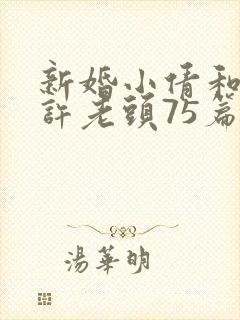 新婚小倩和
許老頭75篇
湯華明